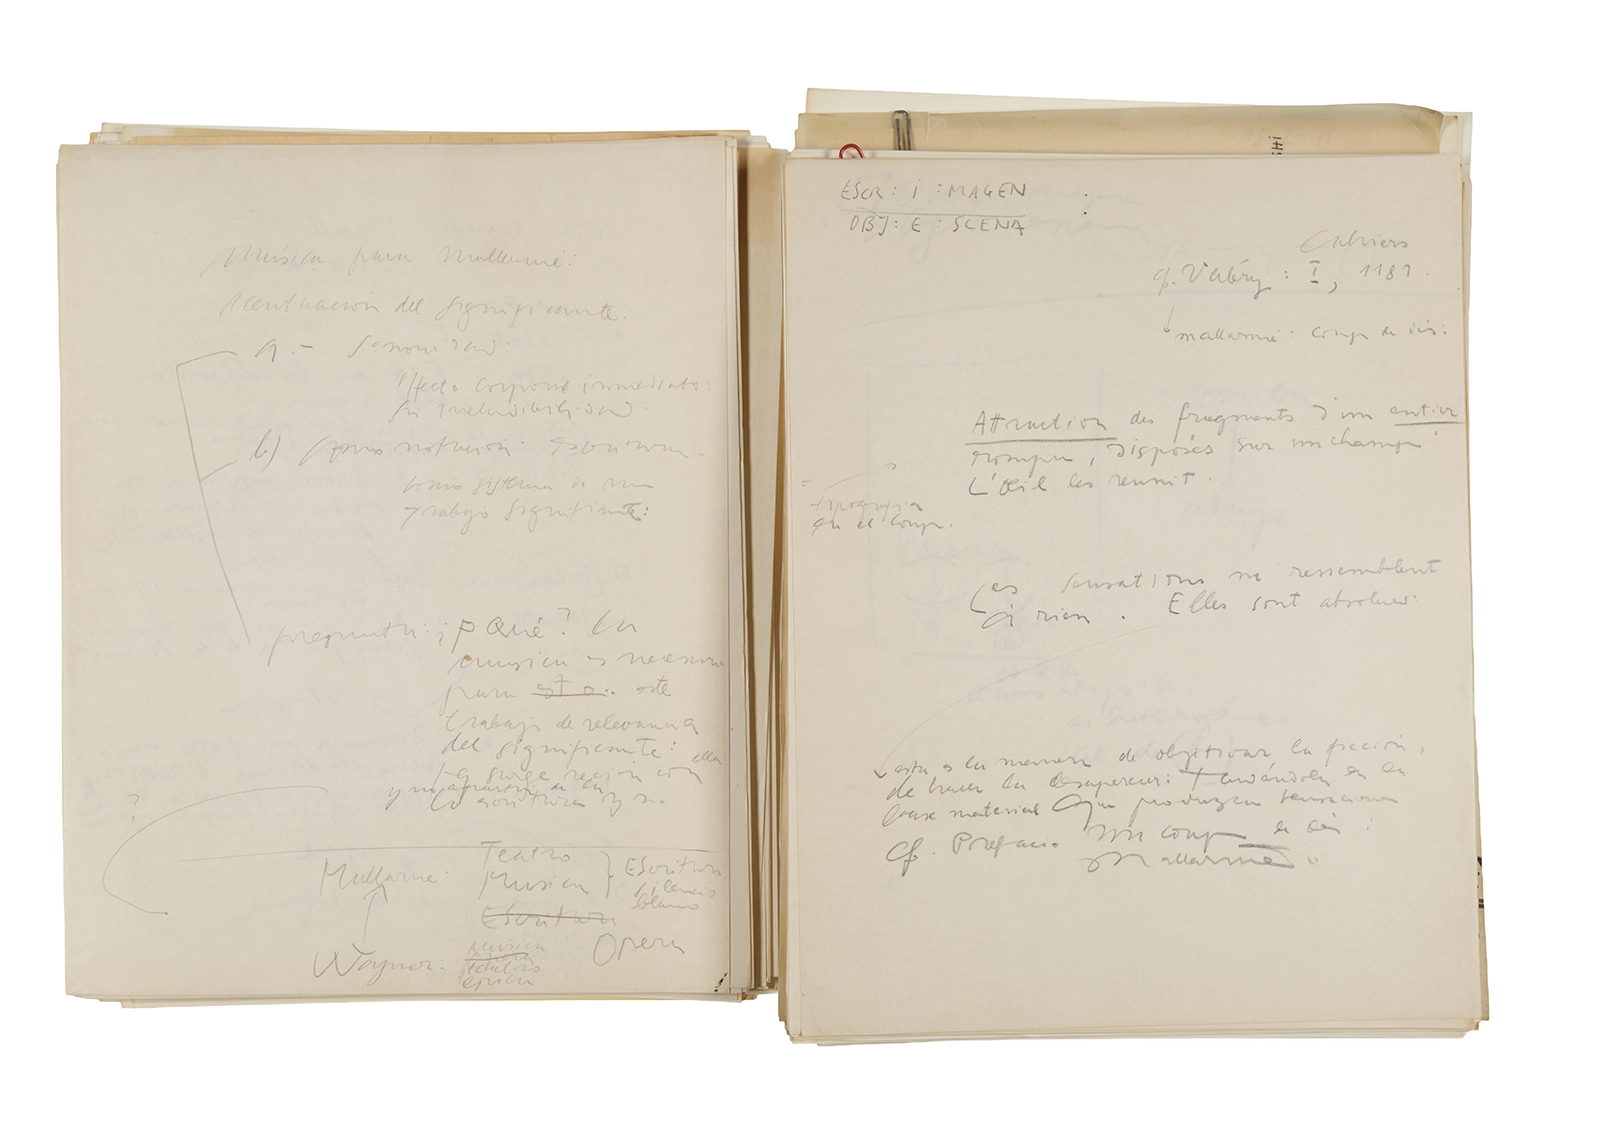 Música para Mallarmé:
del significante:
a.- Sonoridad:
Efecto corporal inmediato:
su ineludibilidad.
b) notación: escritura
como sistema de un
trabajo significante:
pregunta: ¿P Qué? La
musica es necesaria
para esta este
trabajo de relevancia
del significante: ella
surge recién con
y a partir de la
la escritura y su
?
Mallarmé: Teatro
Musica Escritura
silencio
blanco
Escritura
Wagner: Musica
teatro
Opera
ESCR: I : MAGEN
OBJ: E : SCENA
Cahiers
cf. Valéry : I, 1181.
Mallarmé: coup de dés:
Attraction des fragments d'un entier
rompu, disposés sur un champ
L'œil les reunit.
=
tipografia
en el Coup.
Les sensations ne ressemblent
à rien. Elles sont absolues:
esta es la manera de objetivar la ficción,
de hacer la desaparecer: en la
base material que produzcan sensaciones
cf. Prefacio Un coup de dés:
Mallarmé.
SHI